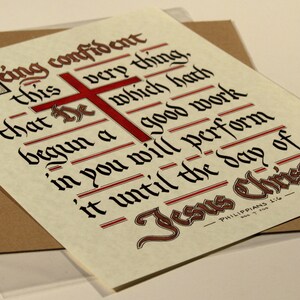 Being confident
this very thing,
that He which hath
begun a good work
in you will perform
it until the day of
Jesus Chris
PHILIPPIANS 1:6